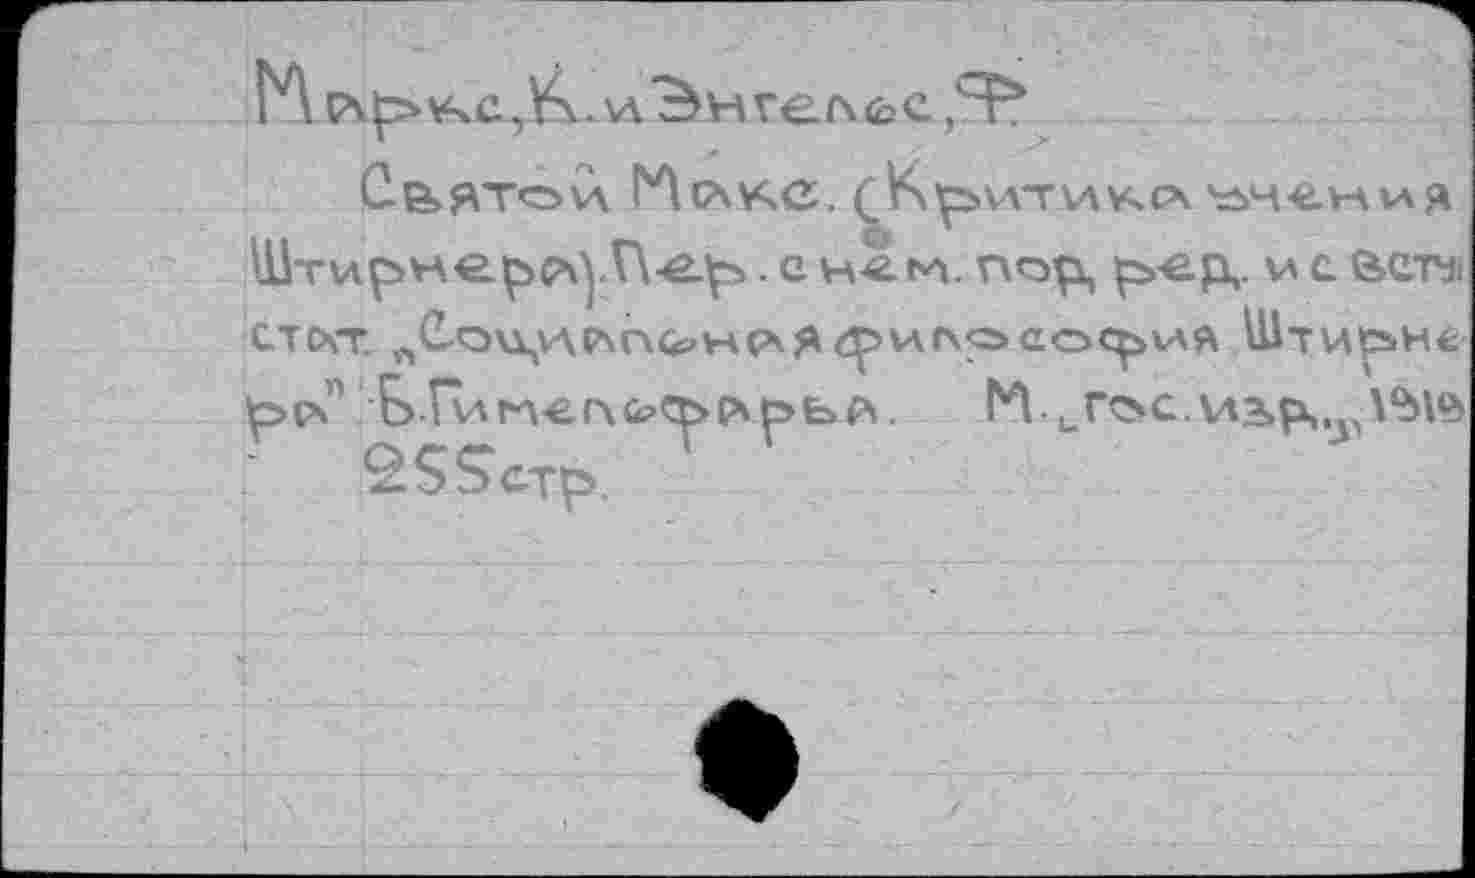 Маркс, К. и Энгельс, Ф.
Святой Макс. (Критика учения
Штирнера). Пер. с нем. под ред. и с всту
стат. „Социальная философия Штирне
ра" Б. Гимельфарба. М. гос. изд.,
255 стр.